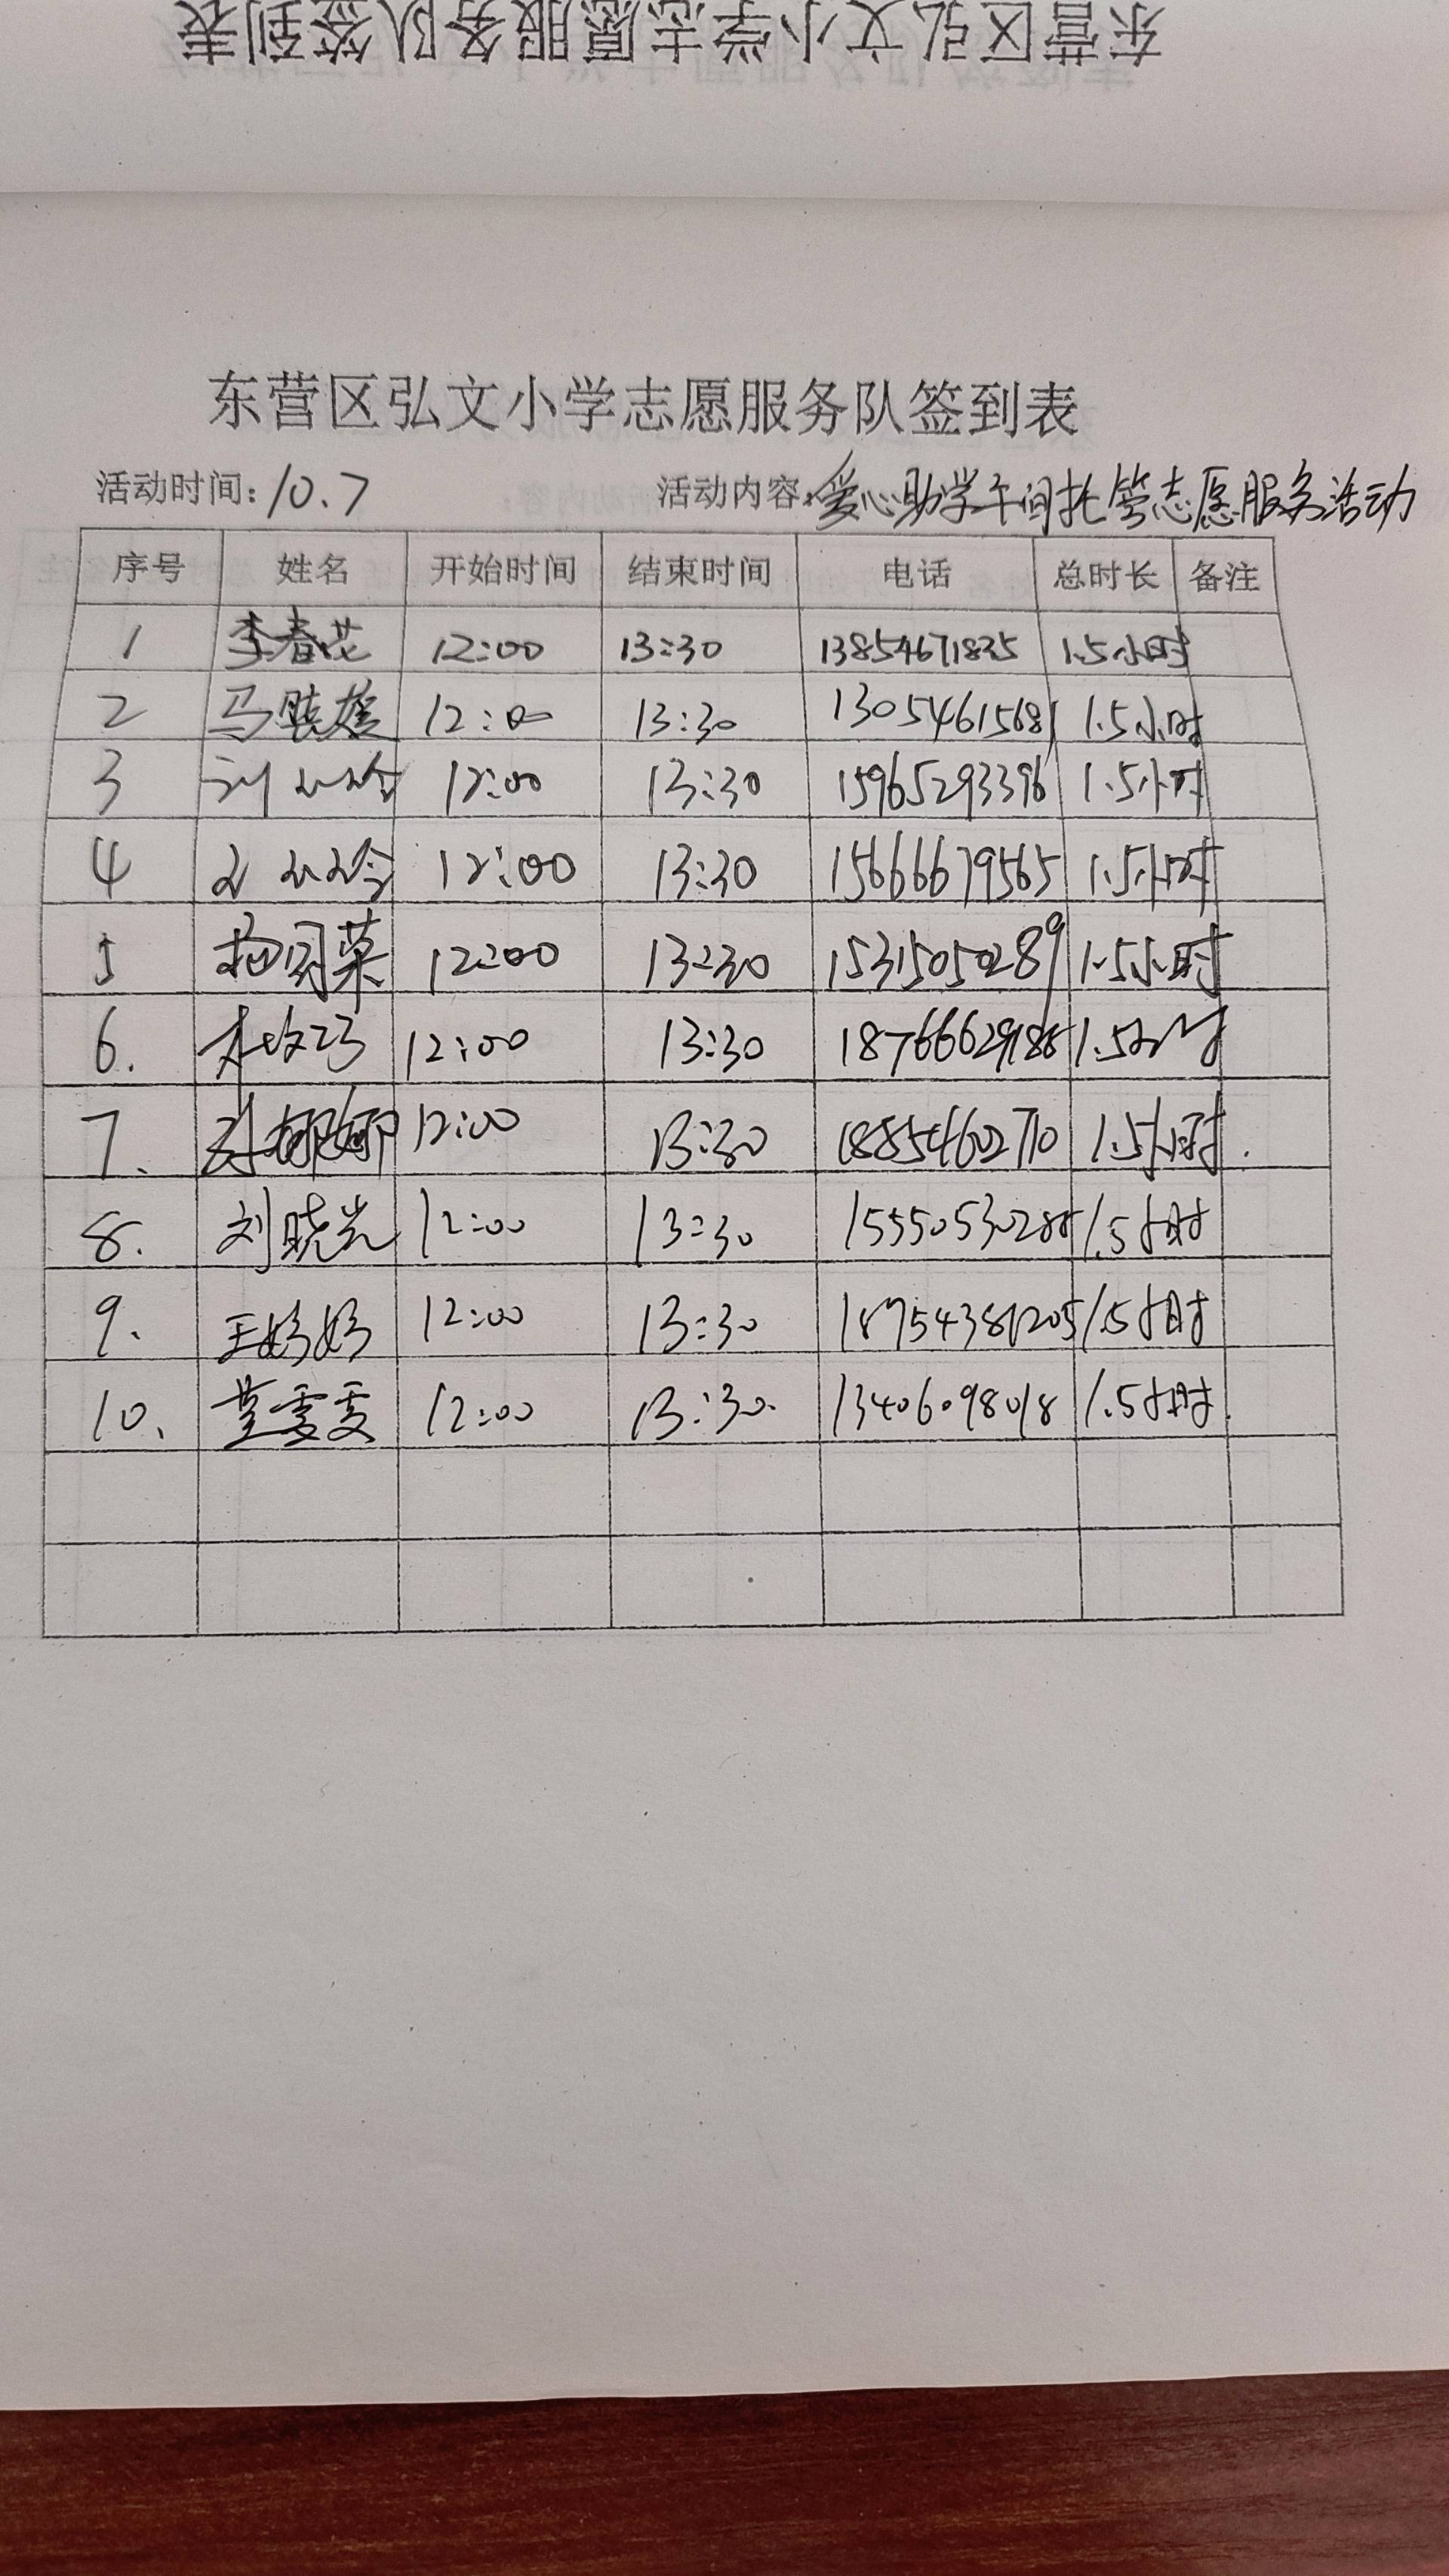 东营区弘文小学志愿服务队签到表
东营区弘文小学志愿服务队签到表
活动时间：10.7 活动内容：爱心助学午间托管志愿服务活动
序号 姓名 开始时间 结束时间 电话 总时长 备注
1 李春花 12:00 13:30 13854671835 1.5小时
2 马晓 12:00 13:30 13054615681 1.5小时
3 12:00 13:30 15965293396 1.5小时
4 12:00 13:30 15666679565 1.5小时
5 12:00 13:30 15315050289 1.5小时
6. 12:00 13:30 1.5小时
7. 娜娜 12:00 13:30 18854602710 1.5小时.
8. 刘晓光 12:00 13:30 15550530288 1.5小时
9. 王婷婷 12:00 13:30 18754381205 1.5小时
10. 董雯雯 12:00 13:30 13406098018 1.5小时.